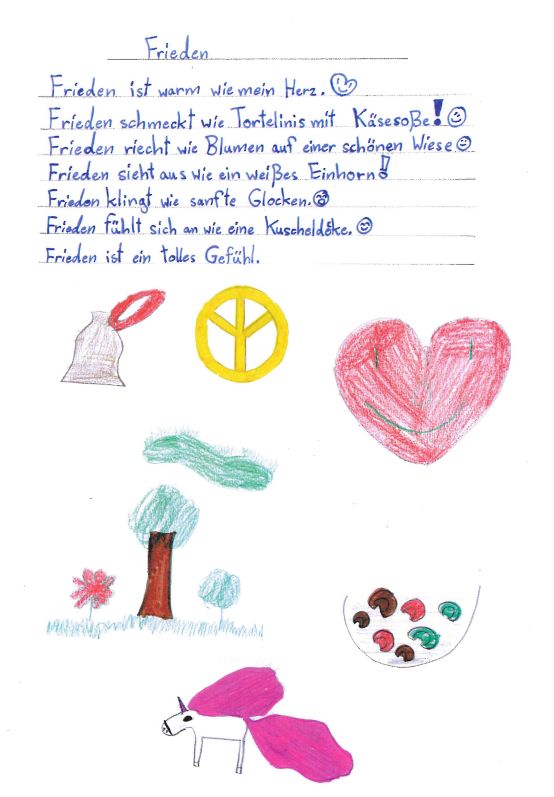 Frieden
Frieden ist warm wie mein Herz.
Frieden schmeckt wie Tortelinis mit Käsesoße!
Frieden riecht wie Blumen auf einer schönen Wiese
Frieden sieht aus wie ein weißes Einhorn!
Frieden klingt wie sanfte Glocken.
Frieden fühlt sich an wie eine Kuscheldeke.
Frieden ist ein tolles Gefühl.